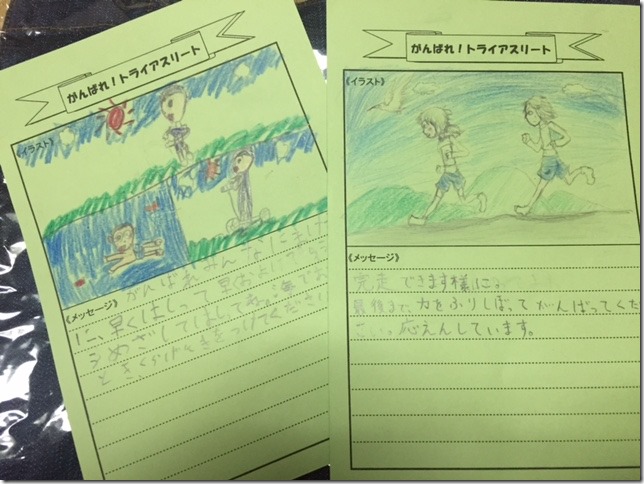 がんばれ!トライアスリート
《イラスト》
《メッセージ》
がんばれみんなにまけ
に、早くはしって早く
めざしてはしってね。海でお
きをつけてください
がんばれ!トライアスリート
《イラスト》
《メッセージ》
完走できます様に。
最後まで力をふりしぼってがんばってくだ
さい。応えんしています。